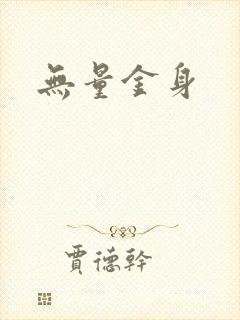 無量金身
賈德幹